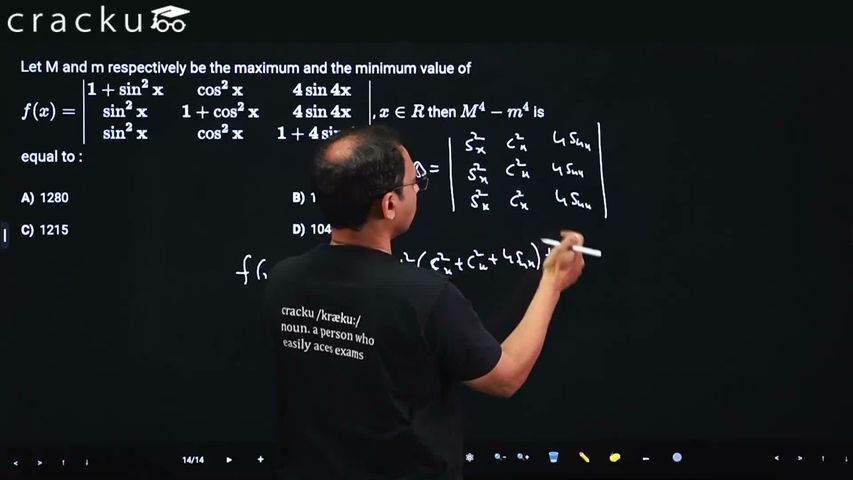 cracku
Let M and m respectively be the maximum and the minimum value of
1 + sin² x cos² x 4 sin 4x
f(x) = sin² x 1 + cos² x 4 sin 4x , x ∈ R then M⁴ − m⁴ is
sin² x cos² x 1 + 4 si
equal to :
A) 1280
B) 1
C) 1215
D) 104
= S²x C²x 4 S4x
S²x C²x 4 S4x
S²x C²x 4 S4x
f( ² ( S²x + C²x + 4 S4x ) +
cracku /kræku:/
noun. a person who
easily aces exams
14/14